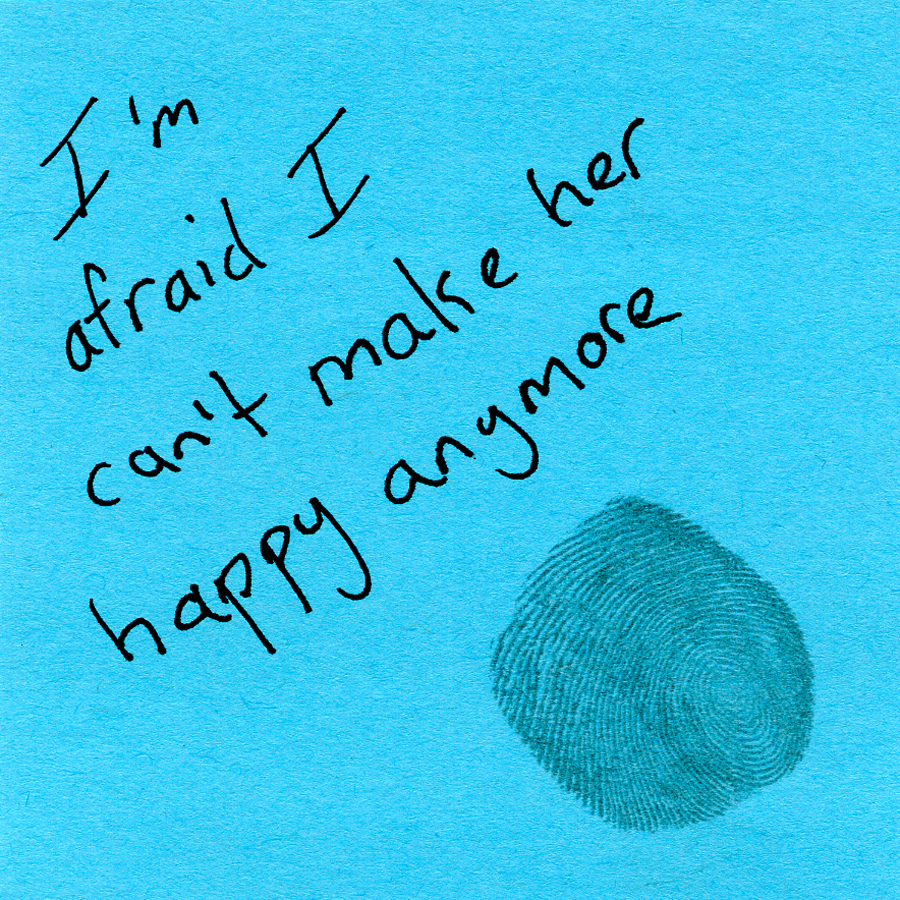 I'm
afraid I
can't make her
happy anymore